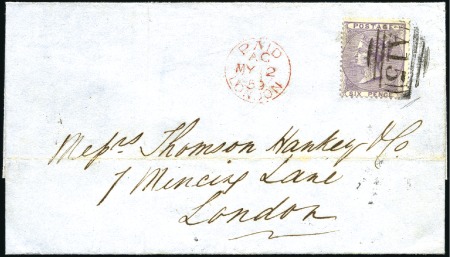 POSTAGE
SIX PENCE
A15
PAID
AC
MY 12
59
LONDON
Messrs Thomson Hankey & Co
7 Mincing Lane
London